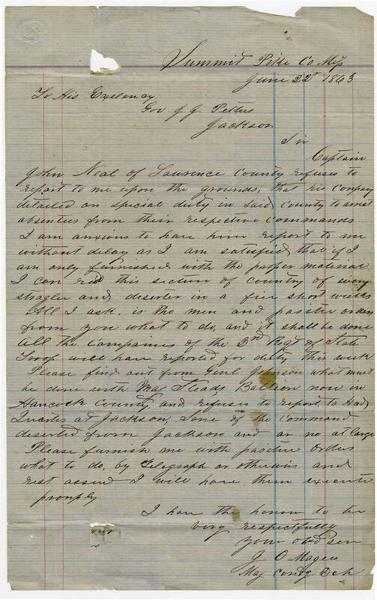 Summit Pike Co Miss
June 22d 1863
To His Excelency
Gov J. J. Pettus
Jackson
Sir
Captain
John Neal of Laurence County refuses to
report to me upon the grounds, that his Company
detailed on special duty in said County to arrest
absentees from their respective Commands
I am anxious to have him report to me
without delay as I am satisfied that if I
am only furnished with the proper material
I can rid this section of country of every
stragler and deserter in a few short weeks
All I ask is the men and positive orders
from you what to do, and it shall be done
All the Companies of the 3rd Regt of State
Troops will have reported for duty this week
Please find out from Genl Johnson what must
be done with Maj Steads Battson now in
Hancock County, and refuses to report to Head
Quarters at Jackson, Some of the Command
deserted from Jackson and ar no at large
Please furnish me with positive orders
what to do, by Telegraph or otherwis and
rest assurd I will have them executed
promply
I have the honor to be
very respectfully
your obd serv
J. O Magee
Maj Comdg